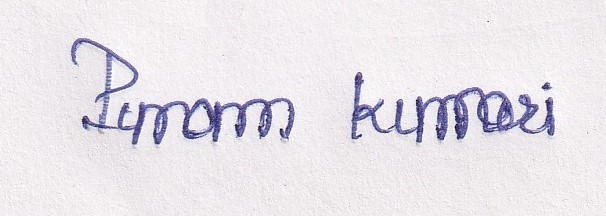 Punam kumari